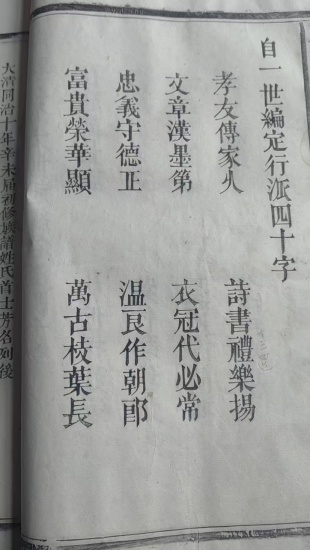 自一世編定行派四十字
孝友傳家久 詩書禮樂揚
文章漢墨第 衣冠代必常
忠義守德正 温良作朝郎
富貴榮華顯 萬古枝葉長
大清同治十年辛未届初修族譜姓氏首士芳名列後